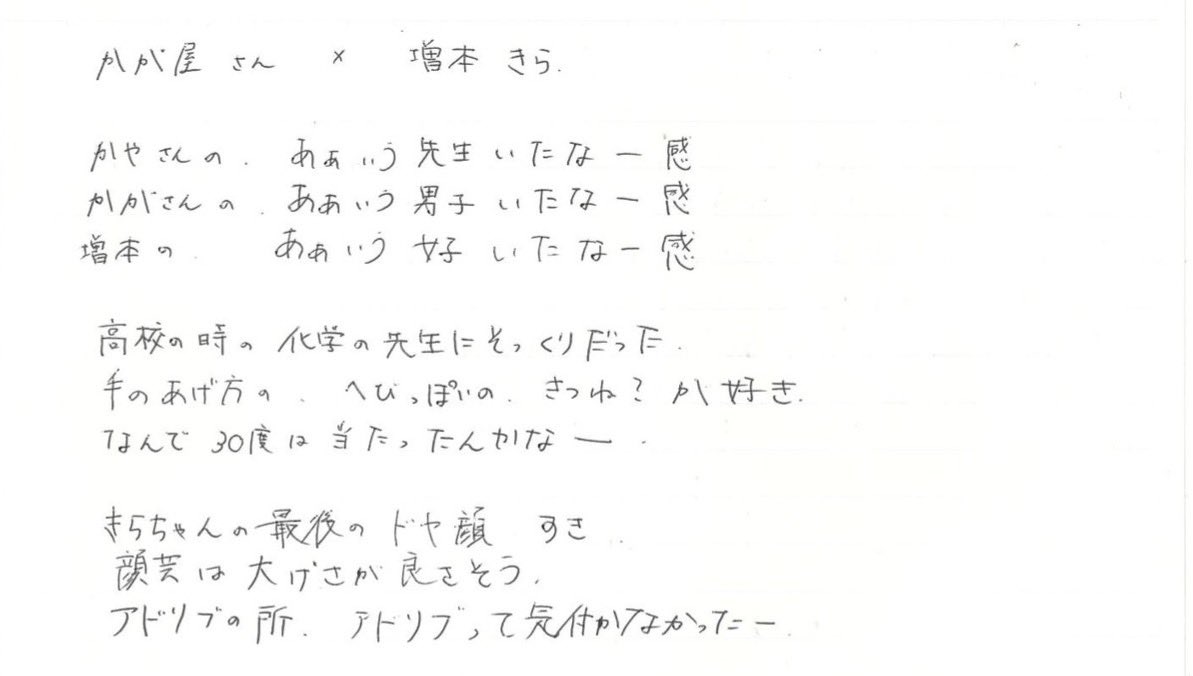 かが屋さん × 増本きら.
かやさんの. あぁいう先生いたなー感
かがさんの. あぁいう男子いたなー感
増本の. あぁいう女子いたなー感
高校の時の化学の先生にそっくりだった.
手のあげ方の. へびっぽいの. きつね？が好き.
なんで30度は当たったんかなー.
きらちゃんの最後のドヤ顔 すき.
顔芸は大げさが良さそう.
アドリブの所. アドリブって気付かなかったー.